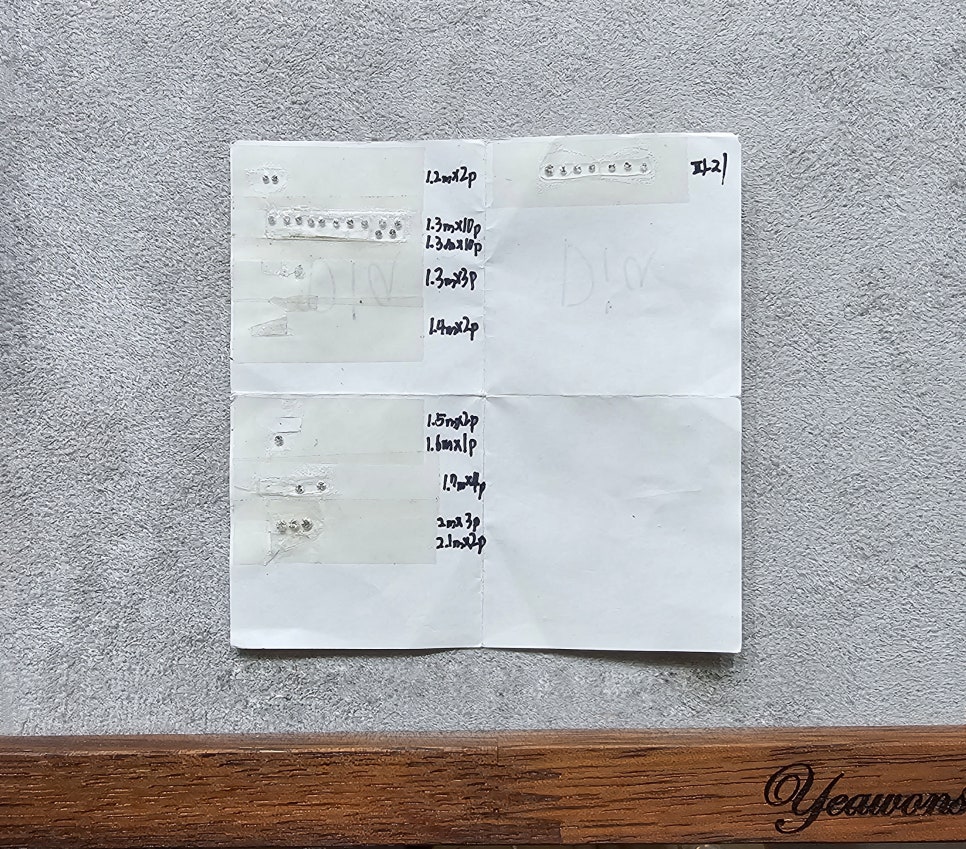 1.2mx2p
1.3mx10p
1.3mx10p
1.3mx3p
1.4mx2p
파리
Dia
Dia
1.5mx2p
1.6mx1p
1.7mx4p
2mx3p
2.1mx2p
Yeawons